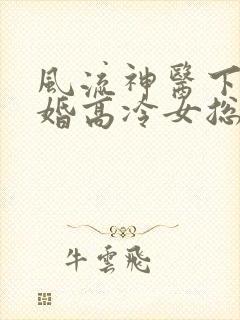 風流神醫下
婚高冷女總
牛雲飛